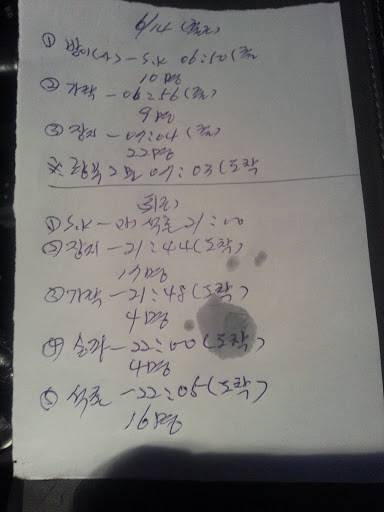 6/14 (출근)
① (A) - S.K 06:50 (출
10명
② 가락 - 06:56 (출)
9명
③ 장지 - 07:04 (출)
22명
※ 07:03 (도착
퇴근)
① S.K - 21:00
② 장지 - 21:44 (도착)
17명
③ 가락 - 21:48 (도착)
4명
④ 송파 - 22:00 (도착)
4명
⑤ 석촌 - 22:05 (도착)
16명